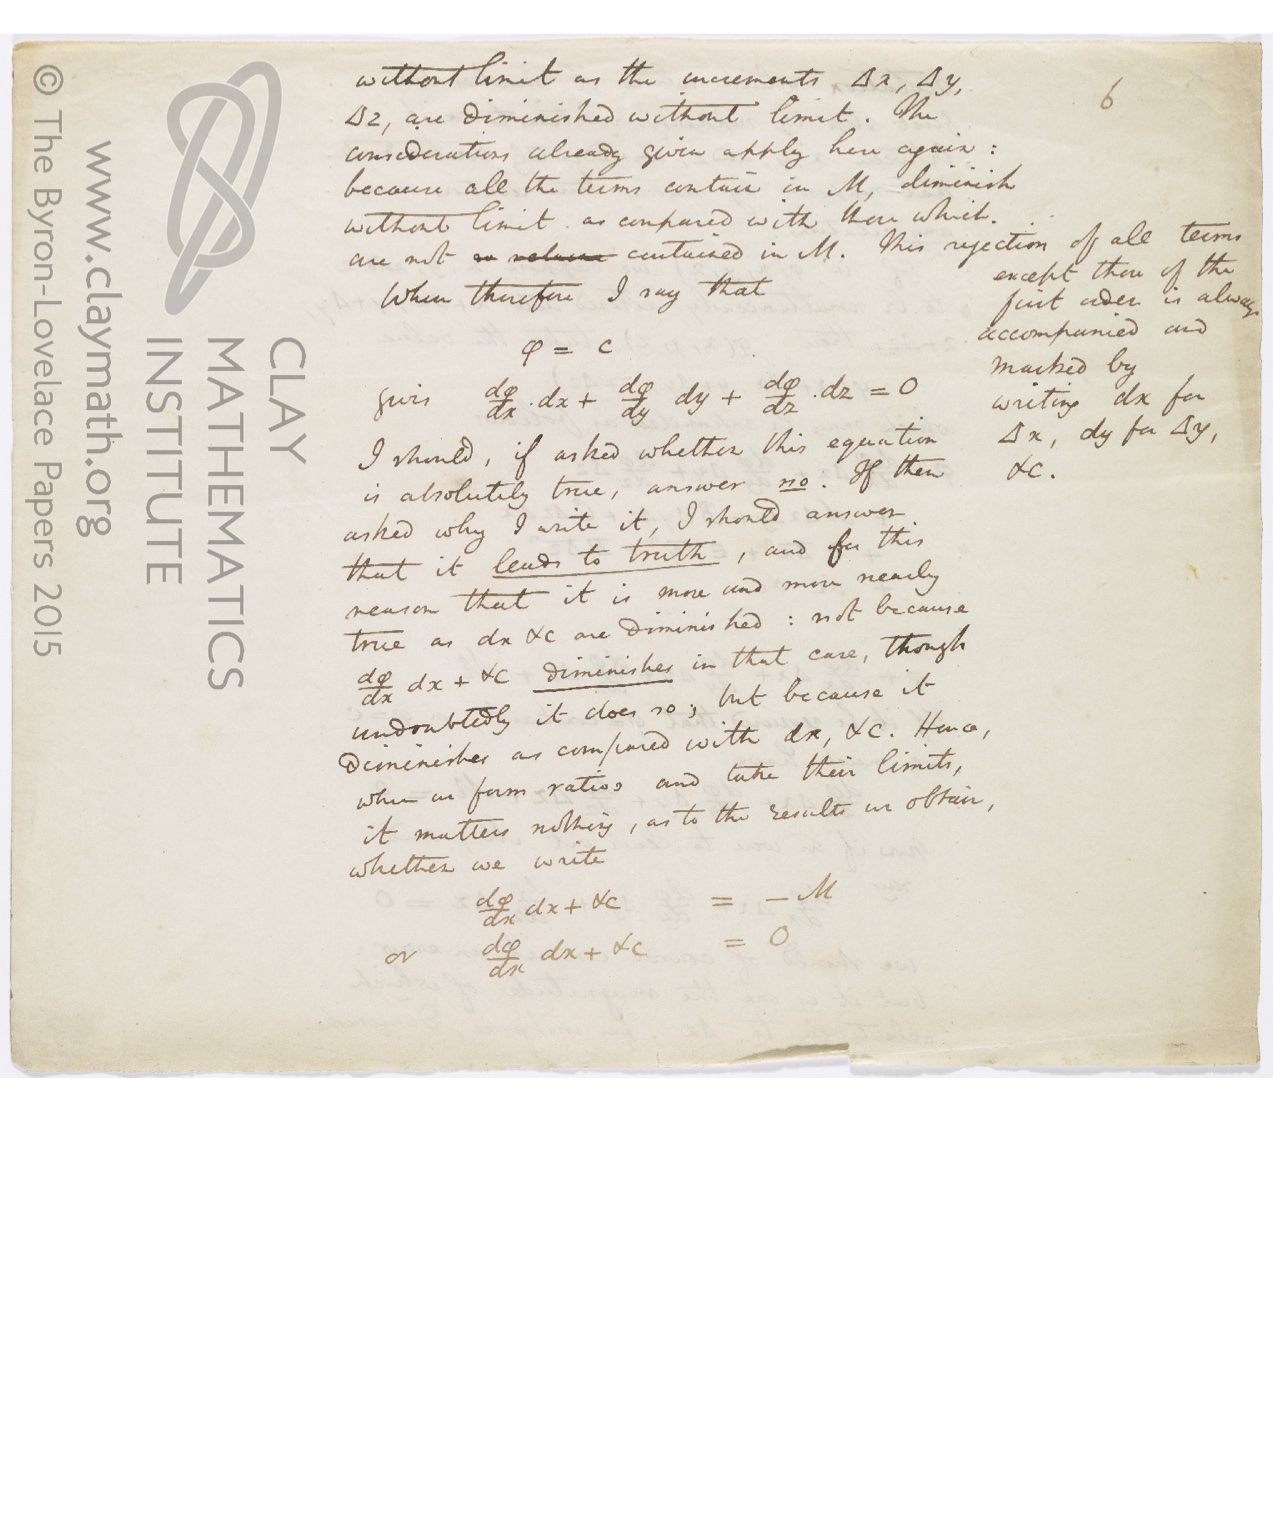 6
without limit as the increments Δx, Δy,
Δz, are diminished without limit. The
considerations already given apply here again:
because all the terms contain in M, diminish
without limit as compared with those which
are not contained in M. This rejection of all terms
except those of the
first order is always
accompanied and
marked by
writing dx for
Δx, dy for Δy,
&c.
When therefore I say that
φ = c
gives dφ/dx . dx + dφ/dy dy + dφ/dz . dz = 0
I should, if asked whether this equation
is absolutely true, answer no. If then
asked why I write it, I should answer
that it leads to truth, and for this
reason that it is more and more nearly
true as dx &c are diminished: not because
dφ/dx dx + &c diminishes in that case, though
undoubtedly it does so; but because it
diminishes as compared with dx, &c. Hence,
when we form ratios and take their limits,
it matters nothing, as to the results we obtain,
whether we write
dφ/dx dx + &c = – M
or dφ/dx dx + &c = 0
CLAY
MATHEMATICS
INSTITUTE
www.claymath.org
© The Byron-Lovelace Papers 2015